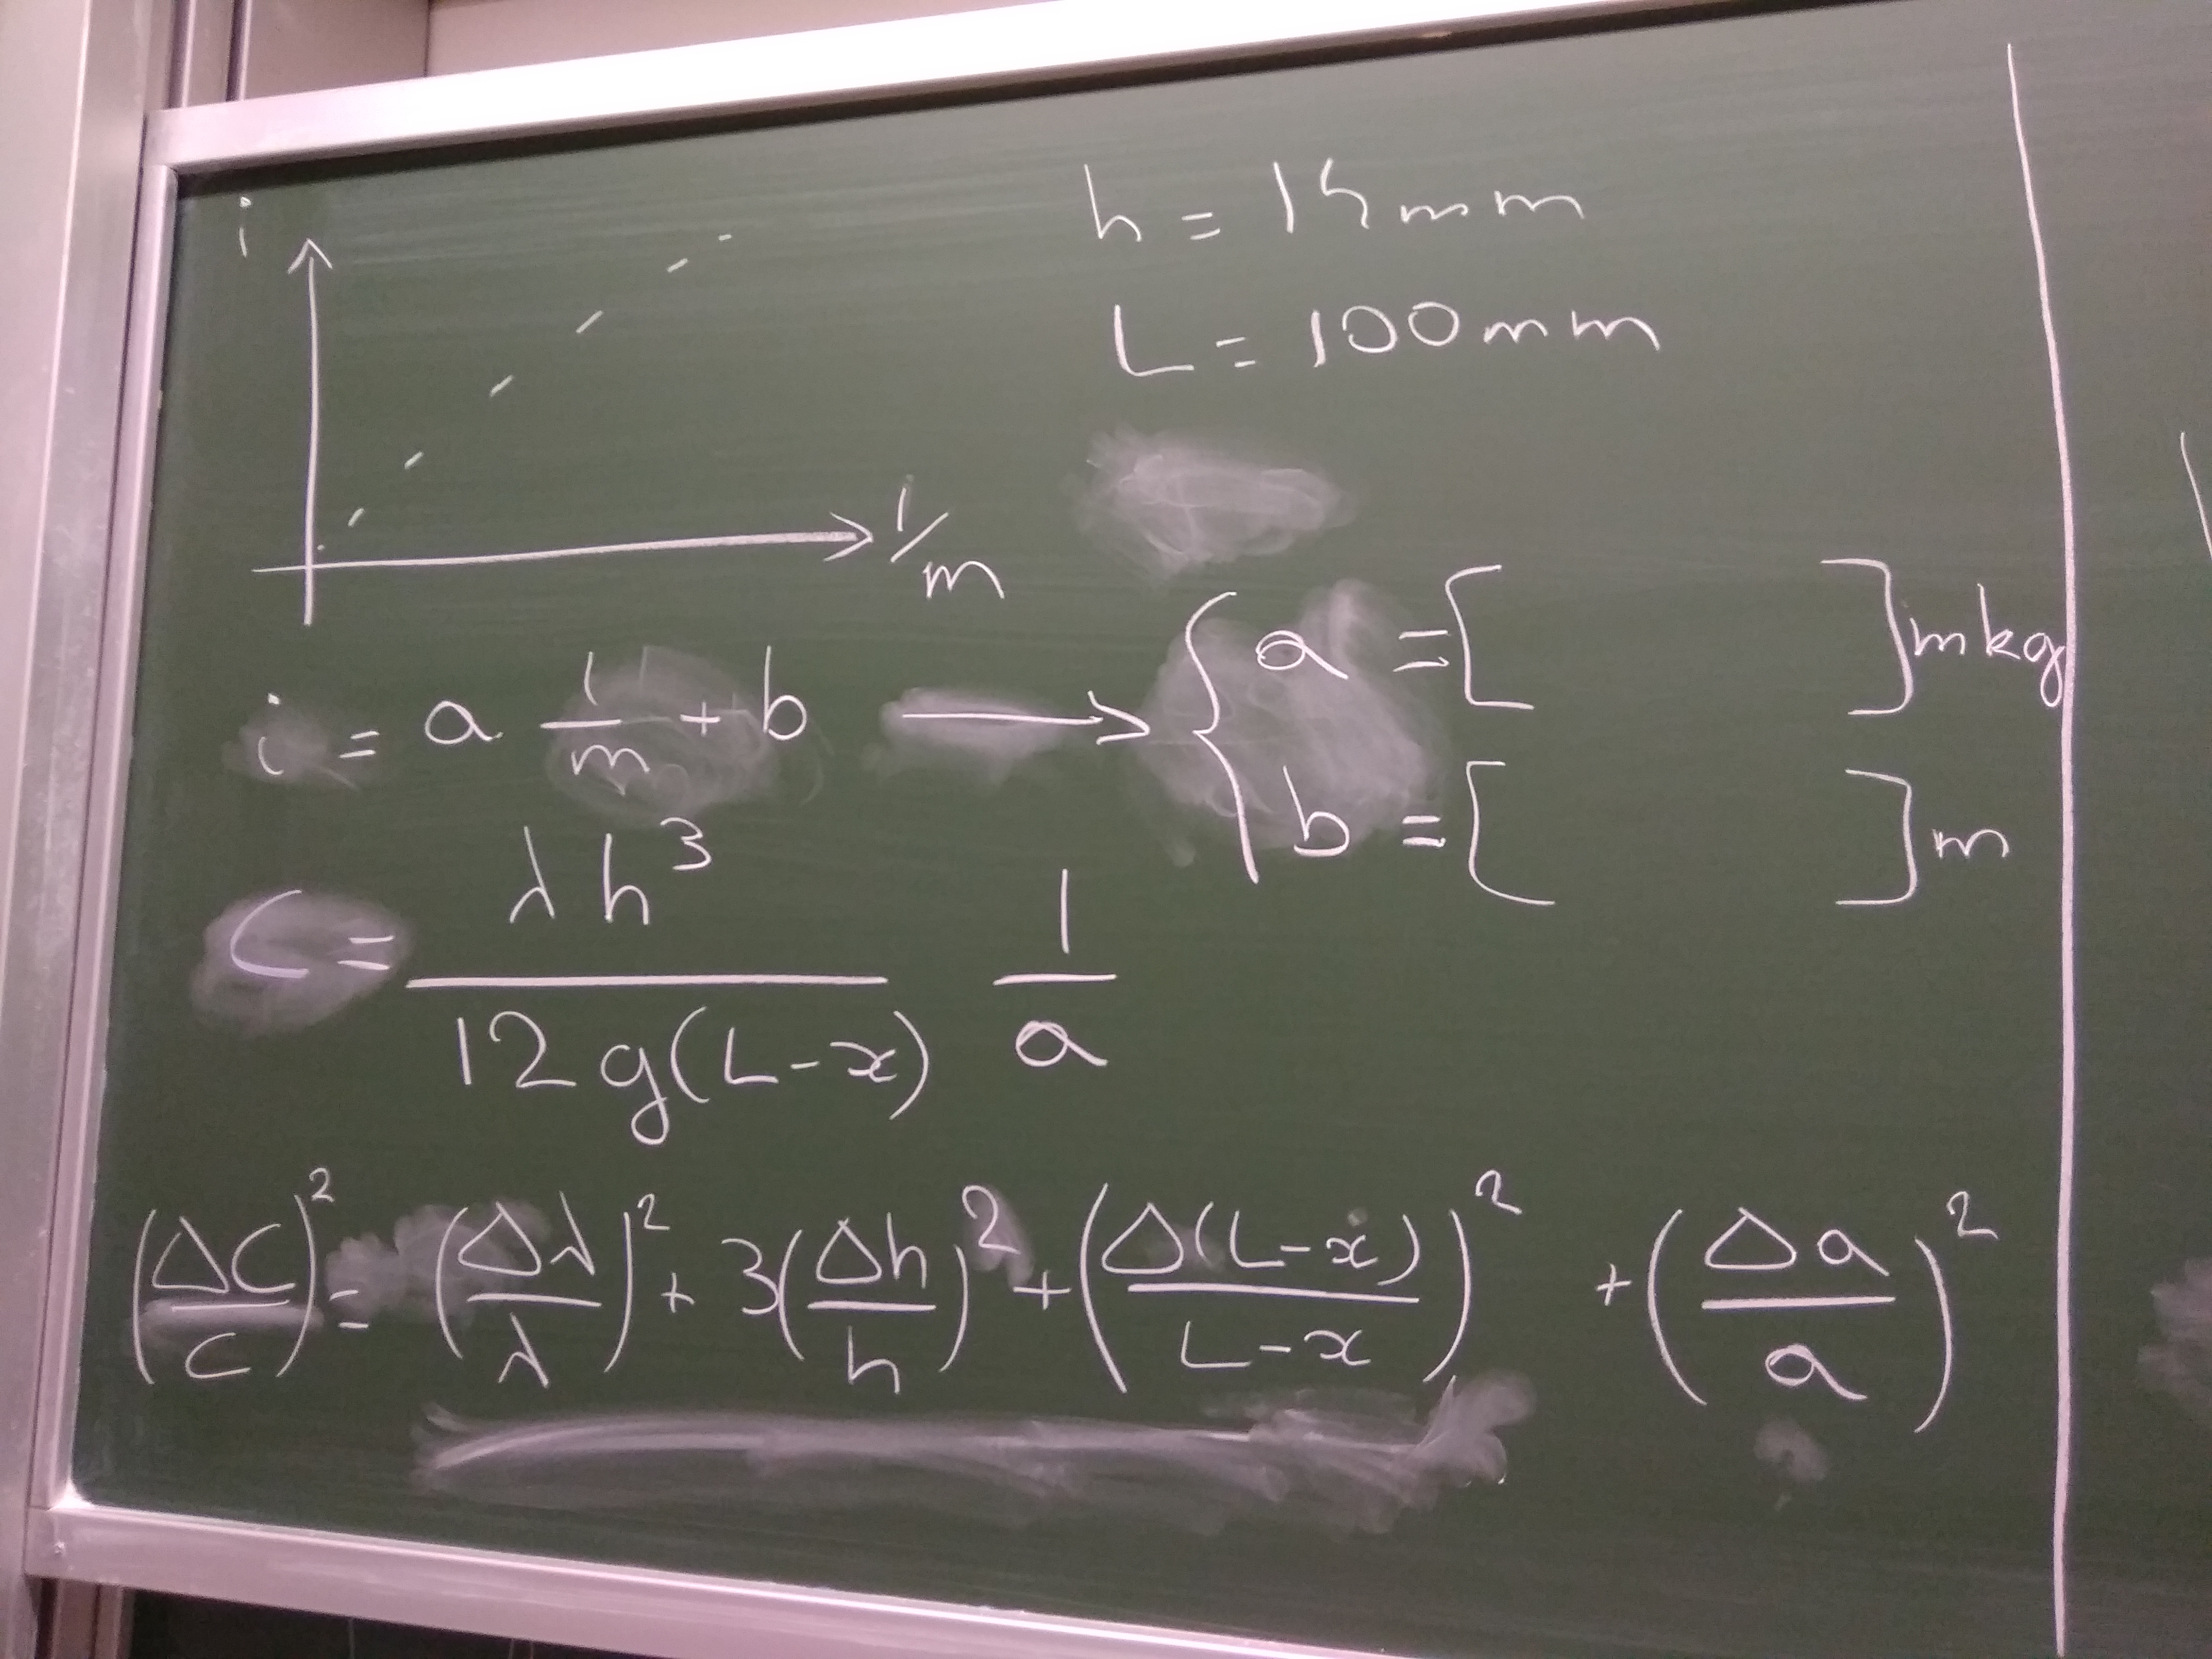 i
1/m
h = 15mm
L = 100mm
i = a 1/m + b → { a = [ ] mkg
b = [ ] m
C = λh³ / 12g(L-x) 1/a
(ΔC/C)² = (Δλ/λ)² + 3(Δh/h)² + (Δ(L-x)/L-x)² + (Δa/a)²